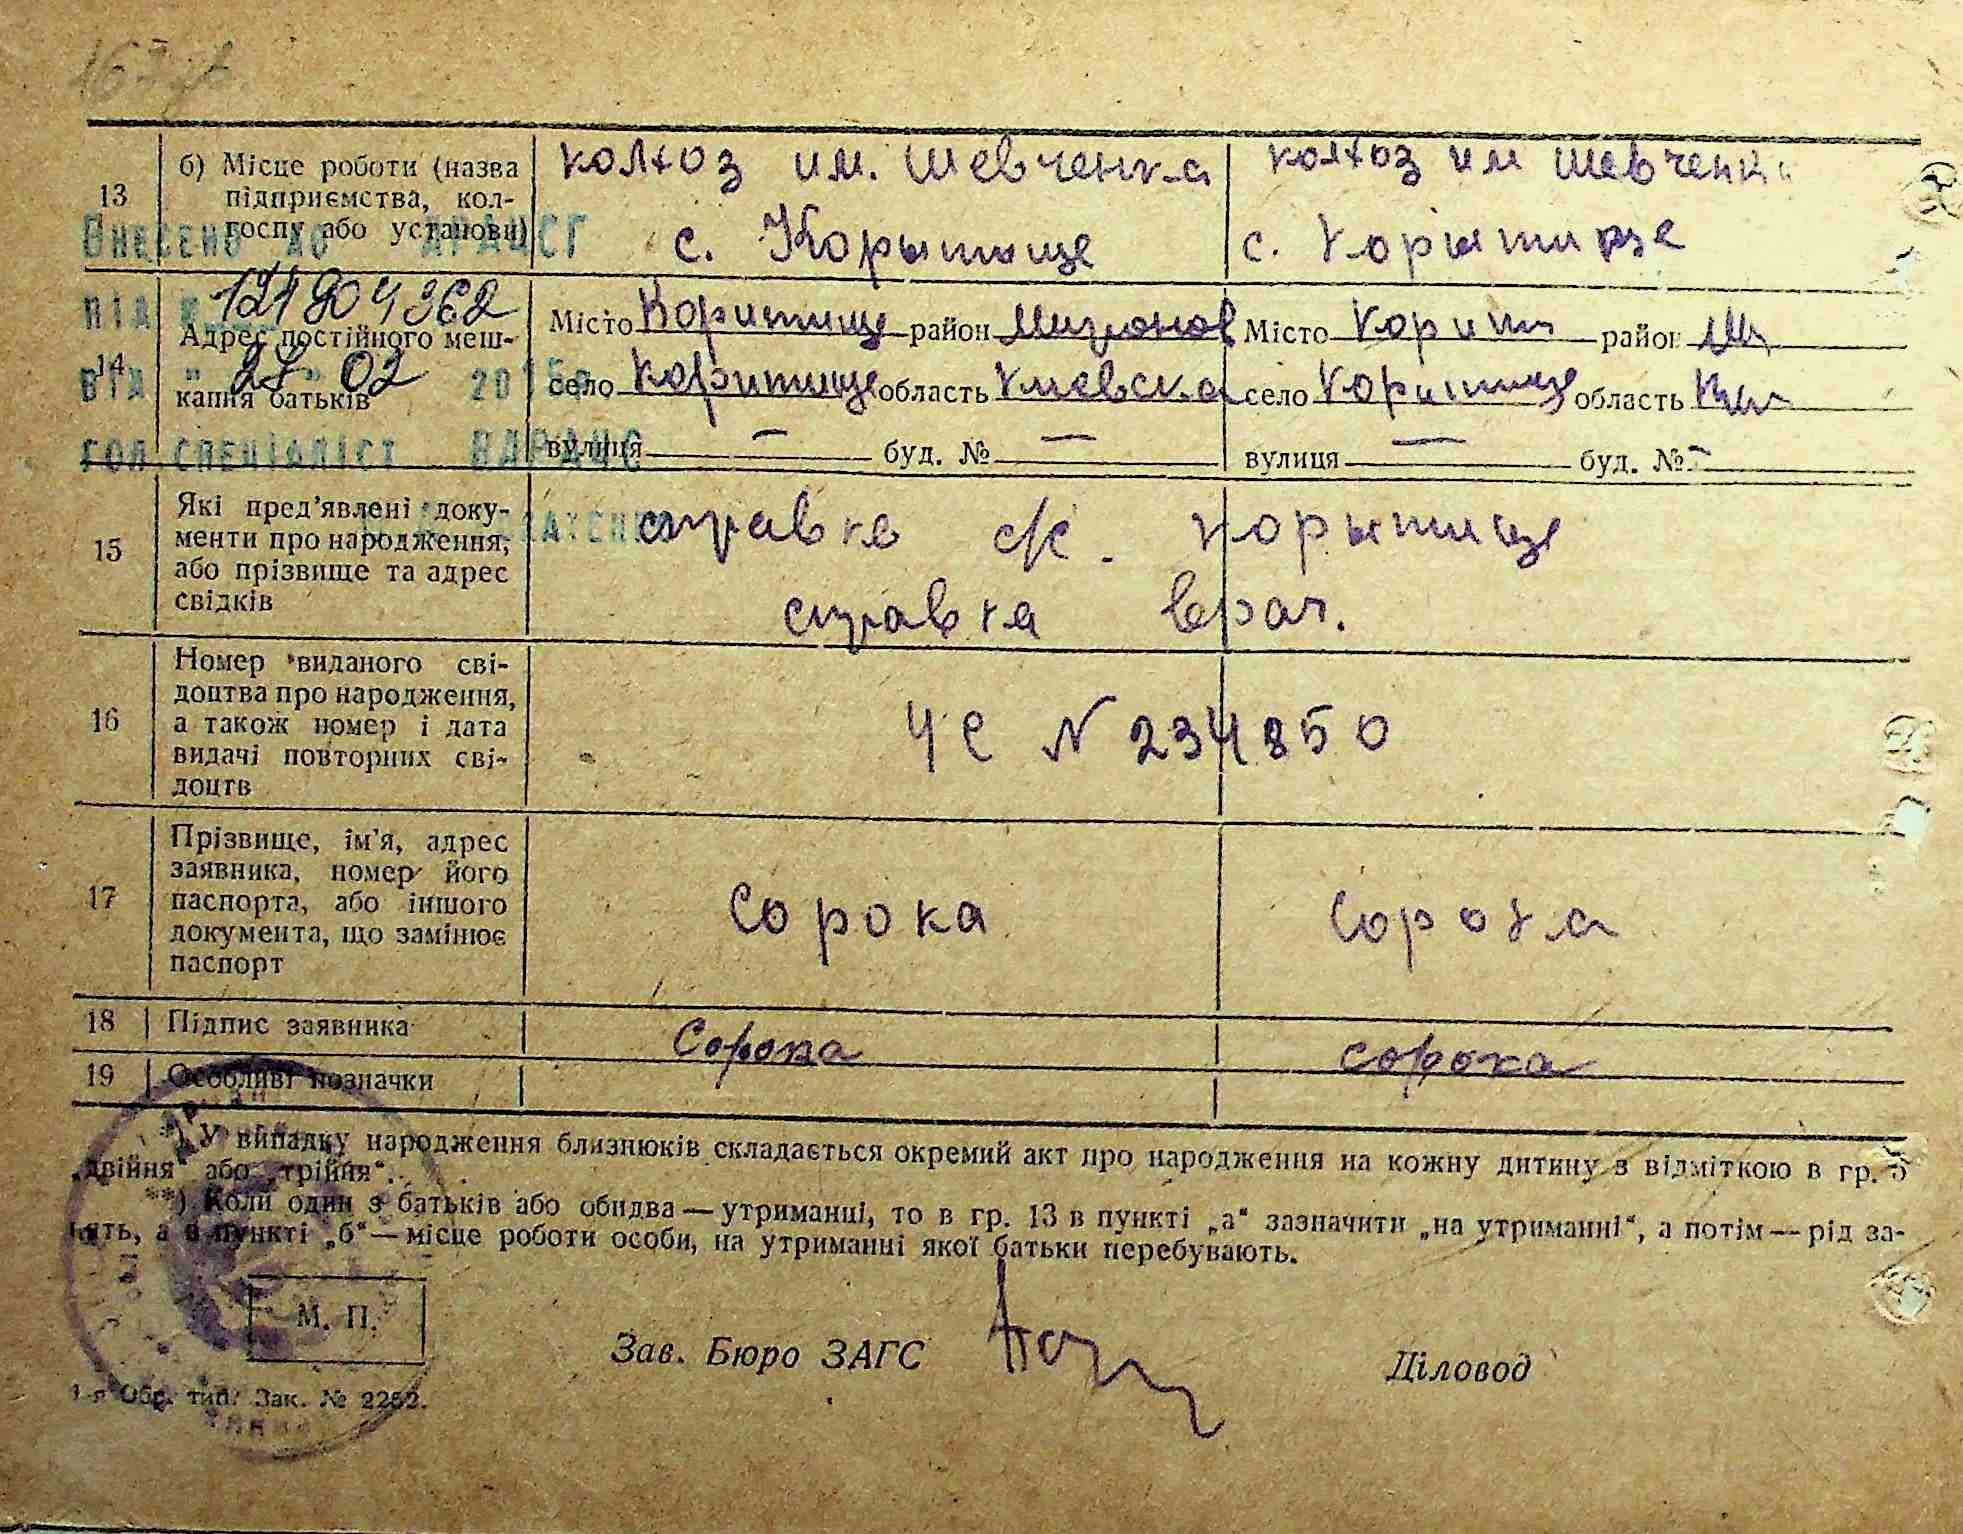 13
б) Місце роботи (назва
підприємства, кол-
госпу або установи)
колхоз им. Шевченка
с. Корытище
колхоз им Шевченка
с. Корытище
Внесено до ДРАЦСГ
121904362
28 02
ВІД " " 2015р
гол спеціаліст ВДРАЦС
14
Адрес постійного меш-
кання батьків
Місто Коритище район Миронов
село Коритище область Киевска
вулиця — буд. № —
Місто Корит район Ми
село Коритище область Ки
вулиця — буд. № -
15
Які пред'явлені доку-
менти про народження,
або прізвище та адрес
свідків
справка с/с. Корытище
справка врач.
16
Номер виданого сві-
доцтва про народження,
а також номер і дата
видачі повторних сві-
доцтв
ЧС N 234850
17
Прізвище, ім'я, адрес
заявника, номер його
паспорта, або іншого
документа, що замінює
паспорт
Сорока
Сорока
18
Підпис заявника
Сорока
Сорока
19
Особливі позначки
*) У випадку народження близнюків складається окремий акт про народження на кожну дитину з відміткою в гр. 5
„двійня“ або „трійня“.
**) Коли один з батьків або обидва — утриманці, то в гр. 13 в пункті „а“ зазначити „на утриманні“, а потім — рід за-
нять, а в пункті „б“ — місце роботи особи, на утриманні якої батьки перебувають.
М. П.
Зав. Бюро ЗАГС
Діловод
1-я Обр. тип. Зак. № 2252.